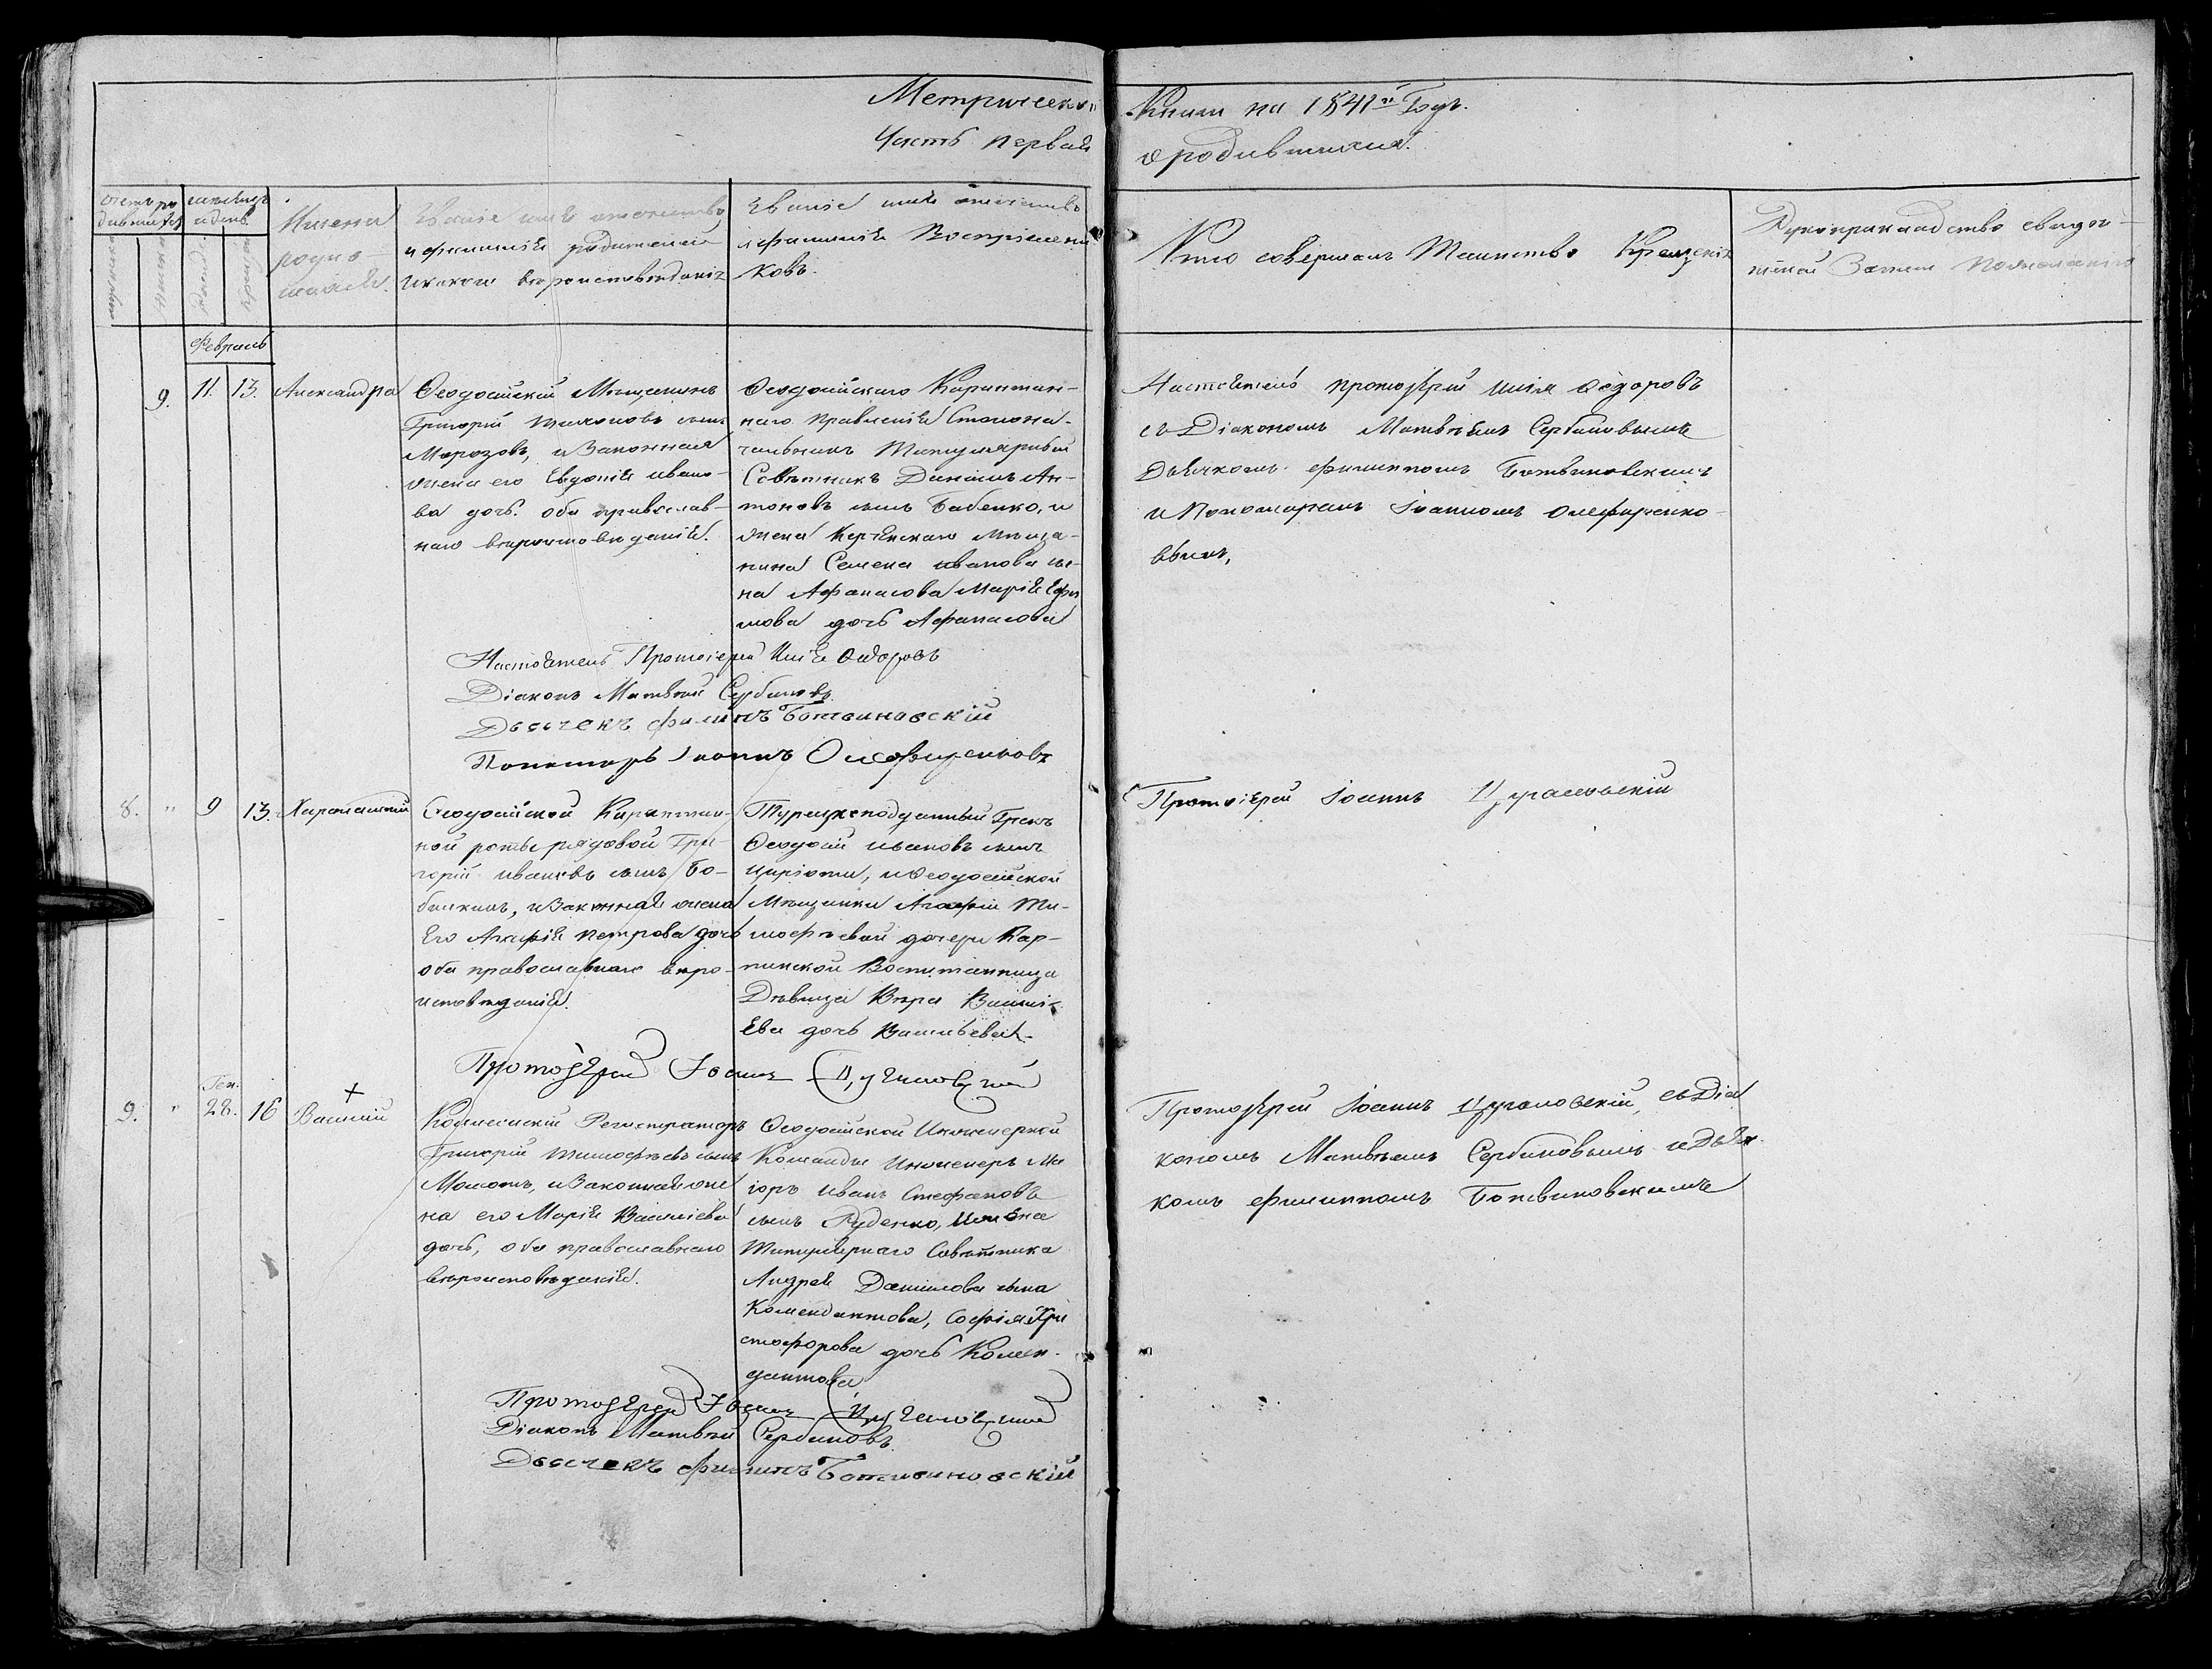 Метрической
Книги на 1841й Годъ.
Часть первая
о родившихся.
Счетъ родившихся
мѣсяцъ и день
Имена родившихся.
Званіе имя отчество
и фамилія родителей
и какого вѣроисповѣданія
Званіе имя отчество
и фамилія Воспріемни-
ковъ.
Кто совершалъ Таинство Крещенія
Рукоприкладство свидѣ-
телей Записи по желанію
Февраль
9. 11. 13. Александра
Ѳеодосійскій Мѣщанинъ
Григорій Тихоновъ сынъ
Морозовъ, и Законная
жена его Евдокія Ивано-
ва дочь. оба православ-
наго вѣроисповѣданія.
Ѳеодосійскаго Карантин-
наго Правленія Столона-
чальникъ Титулярный
Совѣтникъ Даніилъ Ан-
тоновъ сынъ Бабенко, и
жена Керченскаго Мѣща-
нина Семена Иванова сы-
на Афанасова Марія Ефи
мова дочь Афанасова
Настоятель протоіерей Илія Ѳедоровъ
съ Діакономъ Матвѣемъ Сербиновымъ
Дьячкомъ Филиппомъ Ботвиновскимъ
и Пономаремъ Іоанномъ Олефиренко-
вымъ,
Настоятель Протоіерей Илія Ѳедоровъ
Діаконъ Матвѣй Сербиновъ
Дьячекъ Филипъ Ботвиновскій
Пономарь Іоаннъ Олефиренковъ
8. " 9 13. Харалампій
Ѳеодосійской Карантин-
ной роты рядовой Гри-
горій Ивановъ сынъ Бо-
былкинъ, и Законная жена
Его Агафія Петрова дочь
оба православнаго вѣро-
исповѣданія.
Турецкоподданный Грекъ
Ѳеодосій Ивановъ сынъ
Циріоти, и Ѳеодосійской
Мѣщанки Агафіи Ти-
моѳѣевой дочери Кар-
пинской Воспитанница
Дѣвица Вѣра Василі-
Ева дочь Васильева.
Протоіерей Іоаннъ Цугаловскій
Протоіерей Іоаннъ Цугаловскій
Ген.
9. " 28. 16 Василій
Коллежскій Регистраторъ
Григорій Тимофѣевъ сынъ
Момотъ, и Законная же
на его Марія Василіева
дочь, оба православнаго
вѣроисповѣданія.
Ѳеодосійской Инженерной
Команды Инженеръ Ма
іоръ Иванъ Стефановъ
сынъ Руденко, и жена
Титулярнаго Совѣтника
Андрея Данилова сына
Комендантова, Софія Хри
стофорова дочь Комен-
дантова
Протоіерей Іоаннъ Цугаловскій, съ Діа
кономъ Матвѣемъ Сербиновымъ и Дьяч
комъ Филиппомъ Ботвиновскимъ
Протоіерей Іоаннъ Цугаловскій
Діаконъ Матвѣй Сербиновъ
Дьячекъ Филипъ Ботвиновскій